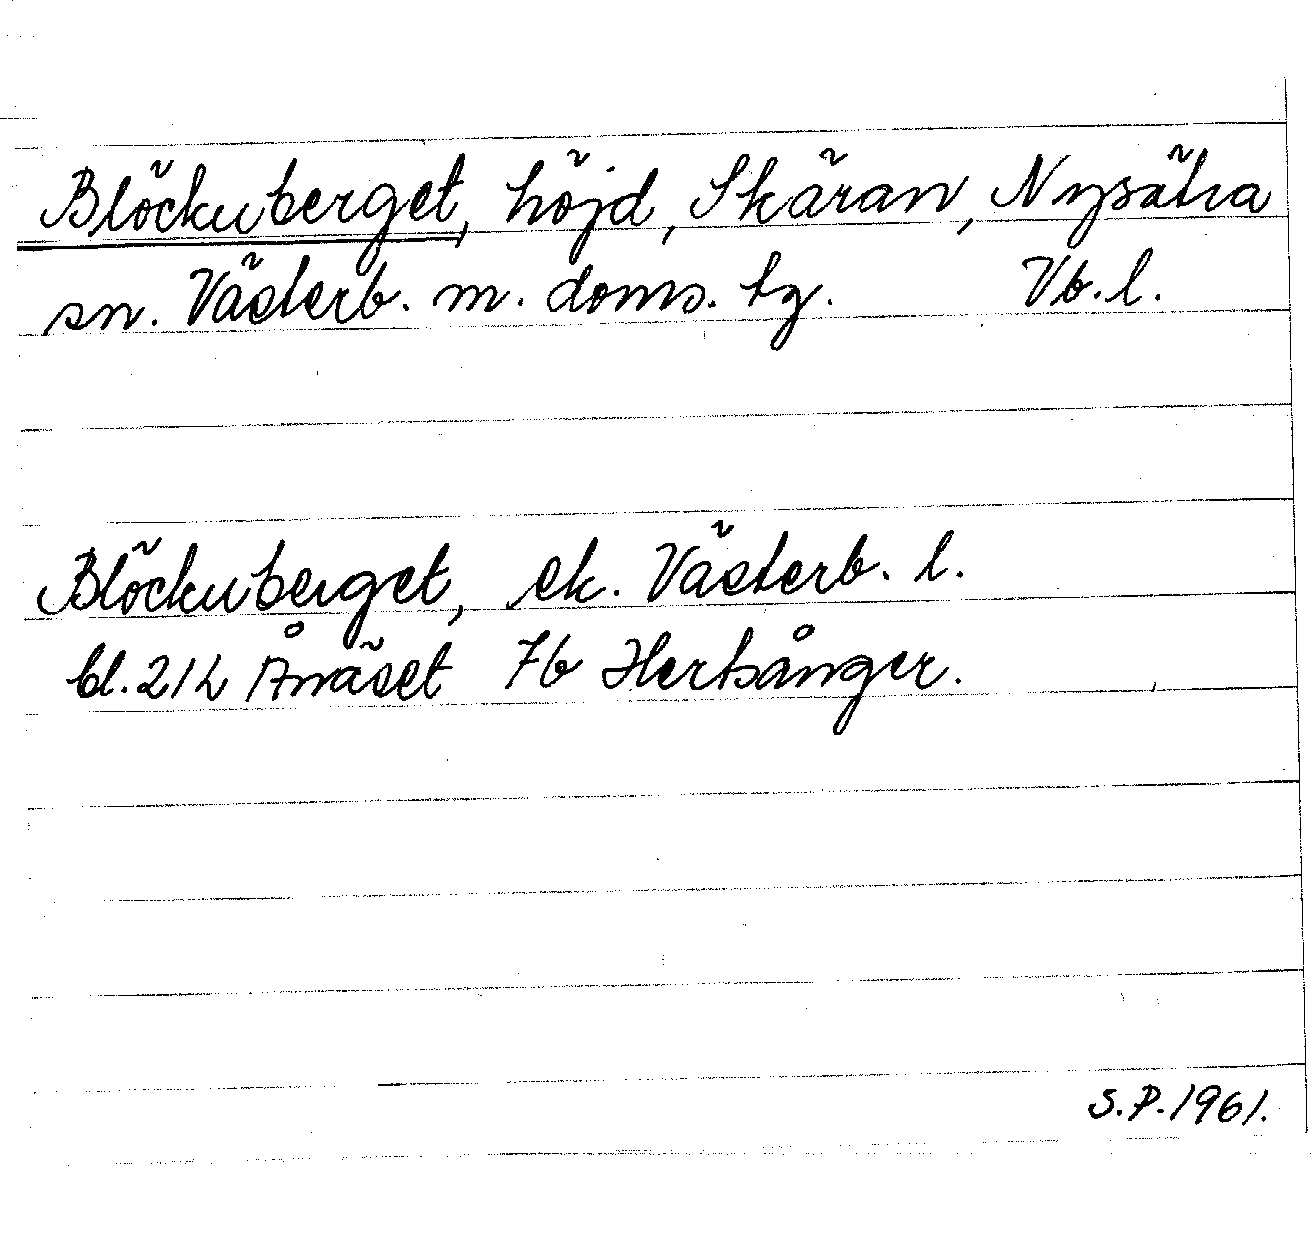 Blöckuberget, höjd, Skäran, Nysätra
sn. Västerb. m. doms. tg. Vb. l.
Blöckuberget, ek. Västerb. l.
bl. 21 L Ånäset 7b Hertsånger.
S.P. 1961.